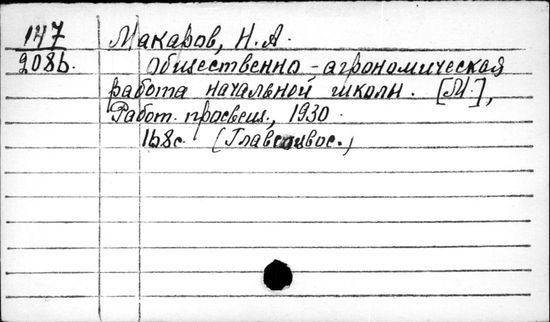 147 Макаров, Н.А.
208b. Общественно-агрономическая
работа начальной школы. [М.],
Работ. просвещ., 1930.
168с. (Главсоцвос.)